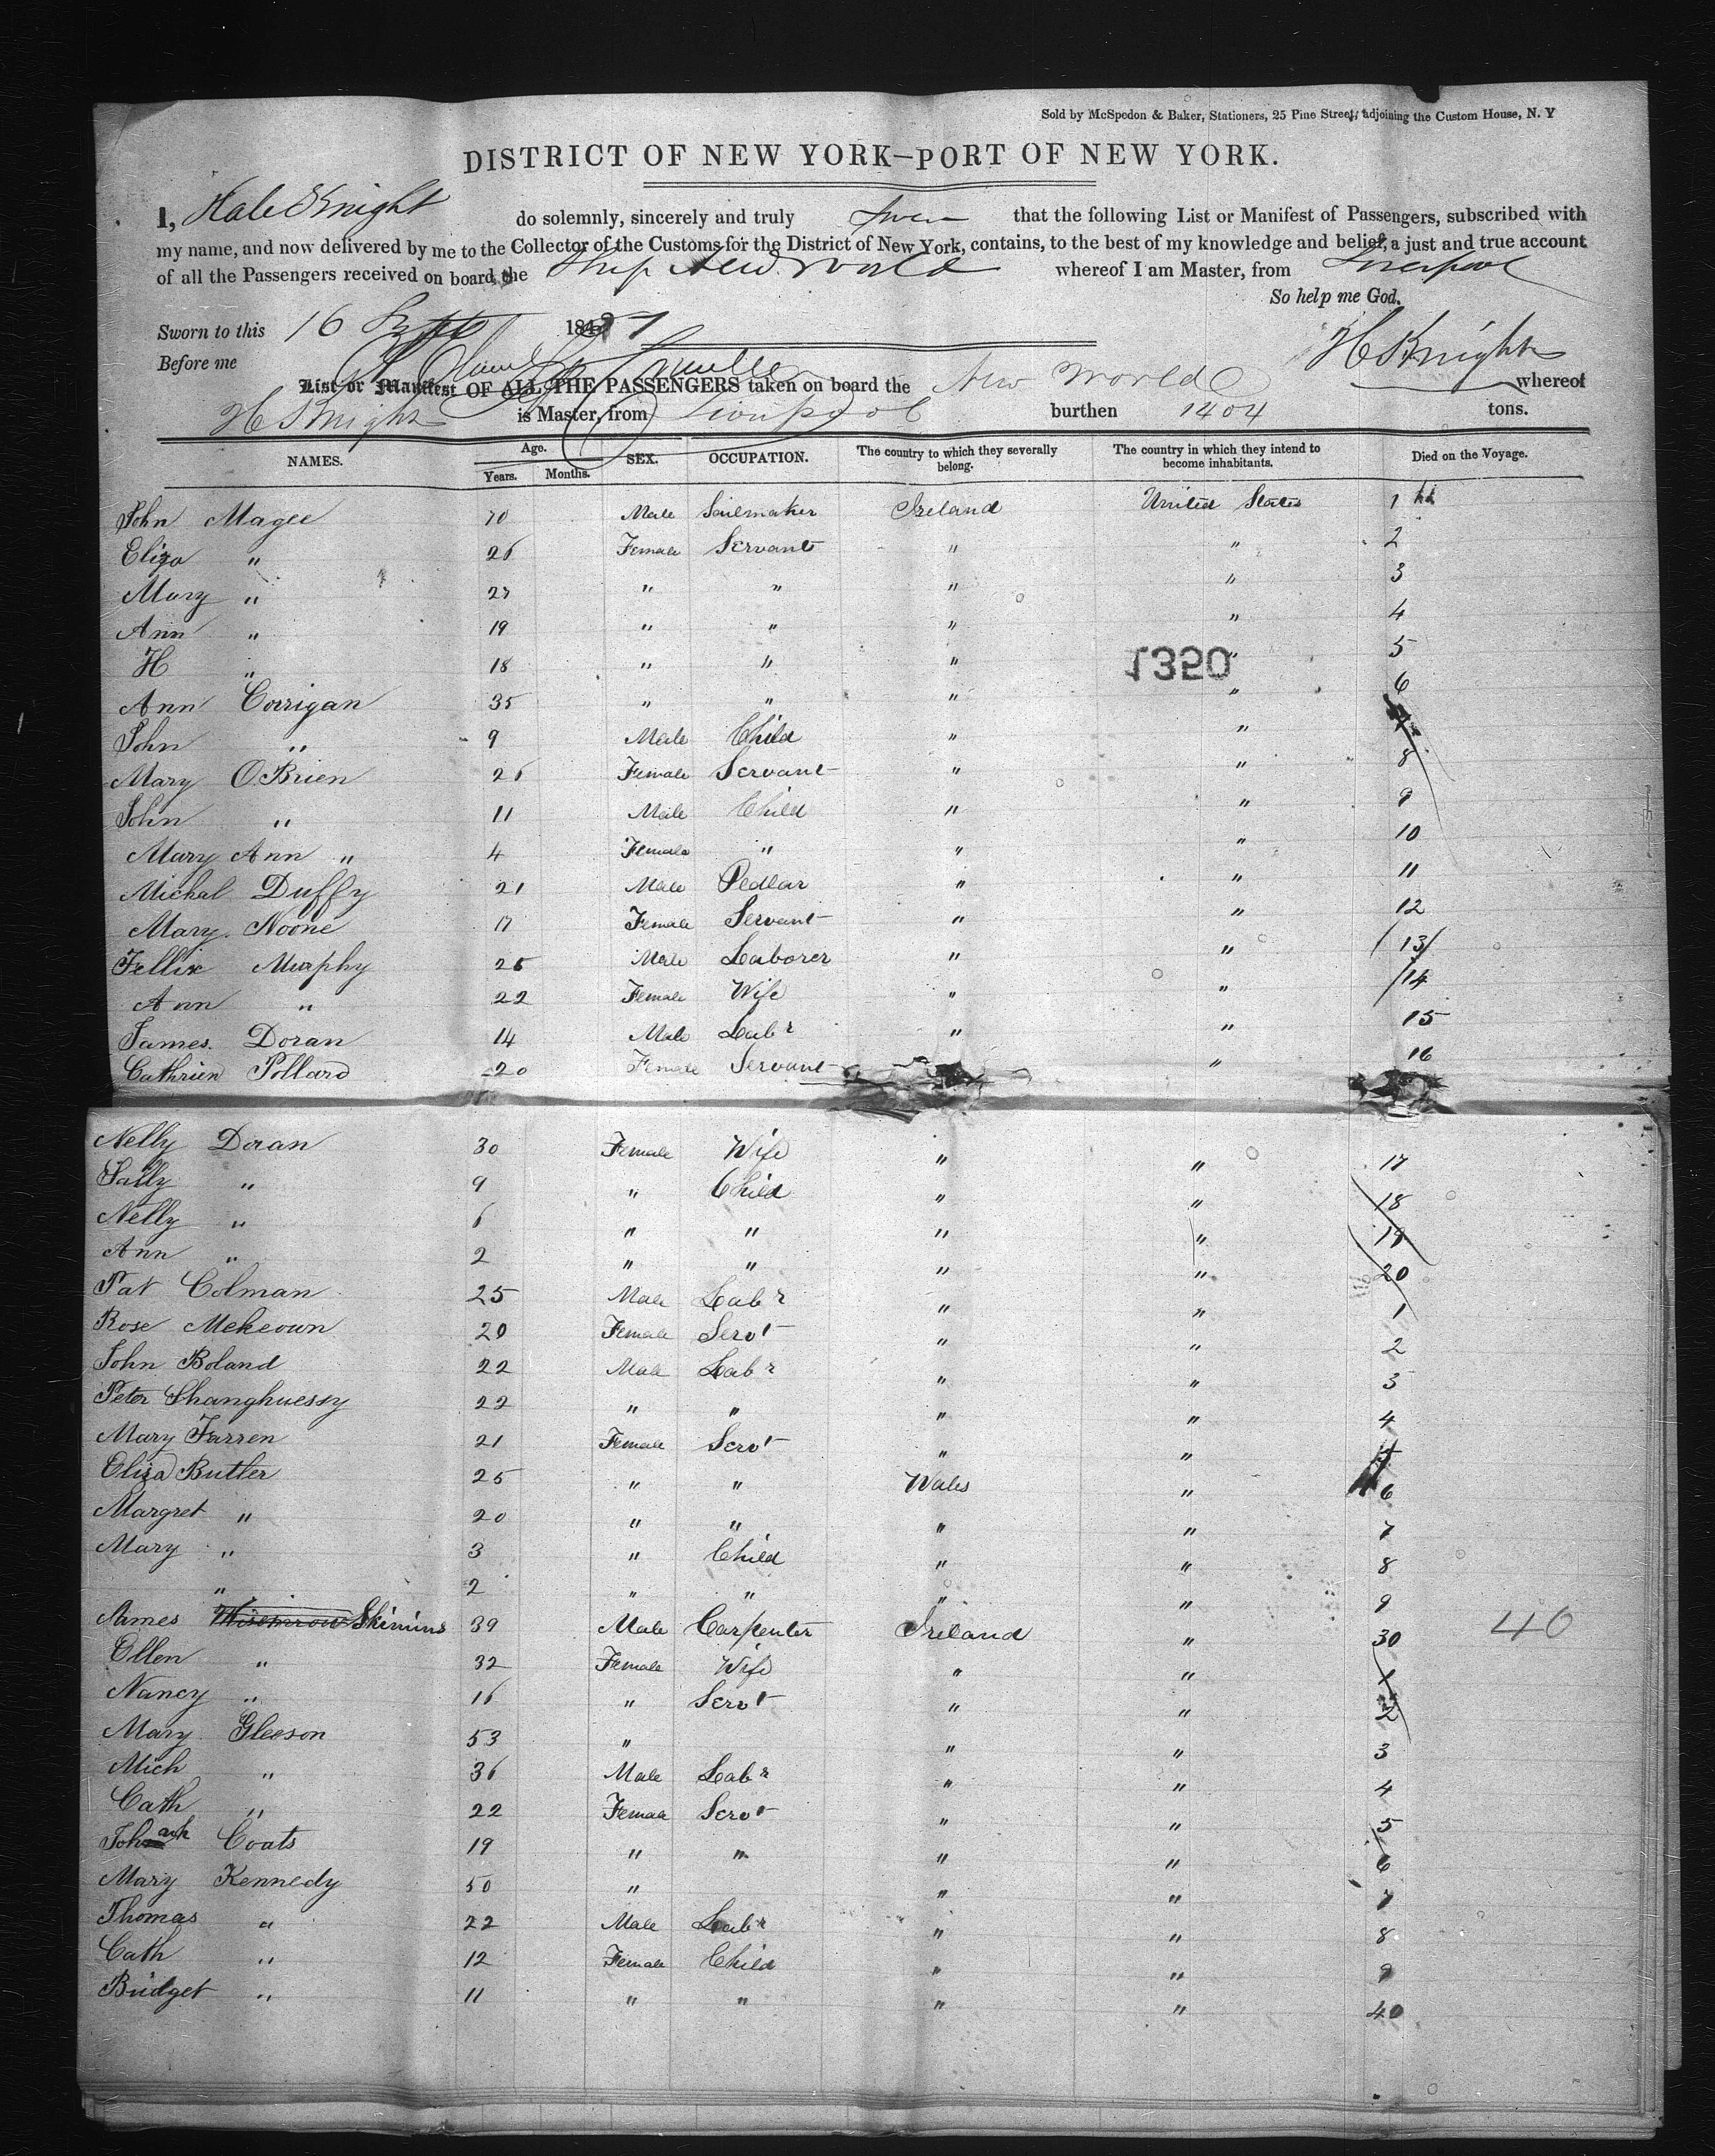 Sold by McSpedon & Baker, Stationers, 25 Pine Street, adjoining the Custom House, N. Y
DISTRICT OF NEW YORK—PORT OF NEW YORK.
I, Hale Knight do solemnly, sincerely and truly Swear that the following List or Manifest of Passengers, subscribed with
my name, and now delivered by me to the Collector of the Customs for the District of New York, contains, to the best of my knowledge and belief, a just and true account
of all the Passengers received on board, the Ship New World whereof I am Master, from Liverpool
So help me God.
Sworn to this 16 Sept 184
Before me H Knight
List or Manifest OF ALL THE PASSENGERS taken on board the New World whereof
H Knight is Master, from Liverpool burthen 1404 tons.
NAMES. Age. Years. Months. SEX. OCCUPATION. The country to which they severally belong. The country in which they intend to become inhabitants. Died on the Voyage.
John Magee 70 Male Sailmaker Ireland United States 1
Eliza " 26 Female Servant " " 2
Mary " 27 " " " " 3
Ann " 19 " " " " 4
H " 18 " " " " 5
1350
Ann Corrigan 35 " " " " 6
John " 9 Male Child " " 7
Mary O.Brien 26 Female Servant " " 8
John " 11 Male Child " " 9
Mary Ann " 4 Female " " " 10
Michal Duffy 21 Male Pedlar " " 11
Mary Noone 17 Female Servant " " 12
Fellix Murphy 26 Male Laborer " " 13
Ann " 22 Female Wife " " 14
James Doran 14 Male Labr " " 15
Cathrien Pollard 20 Female Servant " 16
Nelly Doran 30 Female Wife " " 17
Sally " 9 " Child " " 18
Nelly " 6 " " " " 19
Ann " 2 " " " " 20
Pat Colman 25 Male Labr " " 1
Rose Mckeown 20 Female Servt " " 2
John Boland 22 Male Labr " " 3
Peter Shanghuessy 22 " " " " 4
Mary Farren 21 Female Servt " " 5
Eliza Butler 25 " " Wales " 6
Margret " 20 " " " " 7
Mary " 3 " Child " " 8
" 2 " " " " 9
James Skimins 39 Male Carpenter Ireland " 30 40
Ellen " 32 Female Wife " " 1
Nancy " 16 " Servt " " 2
Mary Gleeson 53 " " " 3
Mich " 36 Male Labr " " 4
Cath " 22 Female Servt " " 5
Johanh Coats 19 " " " " 6
Mary Kennedy 50 " " " 7
Thomas " 22 Male Labr " " 8
Cath " 12 Female Child " " 9
Bridget " 11 " " " " 40